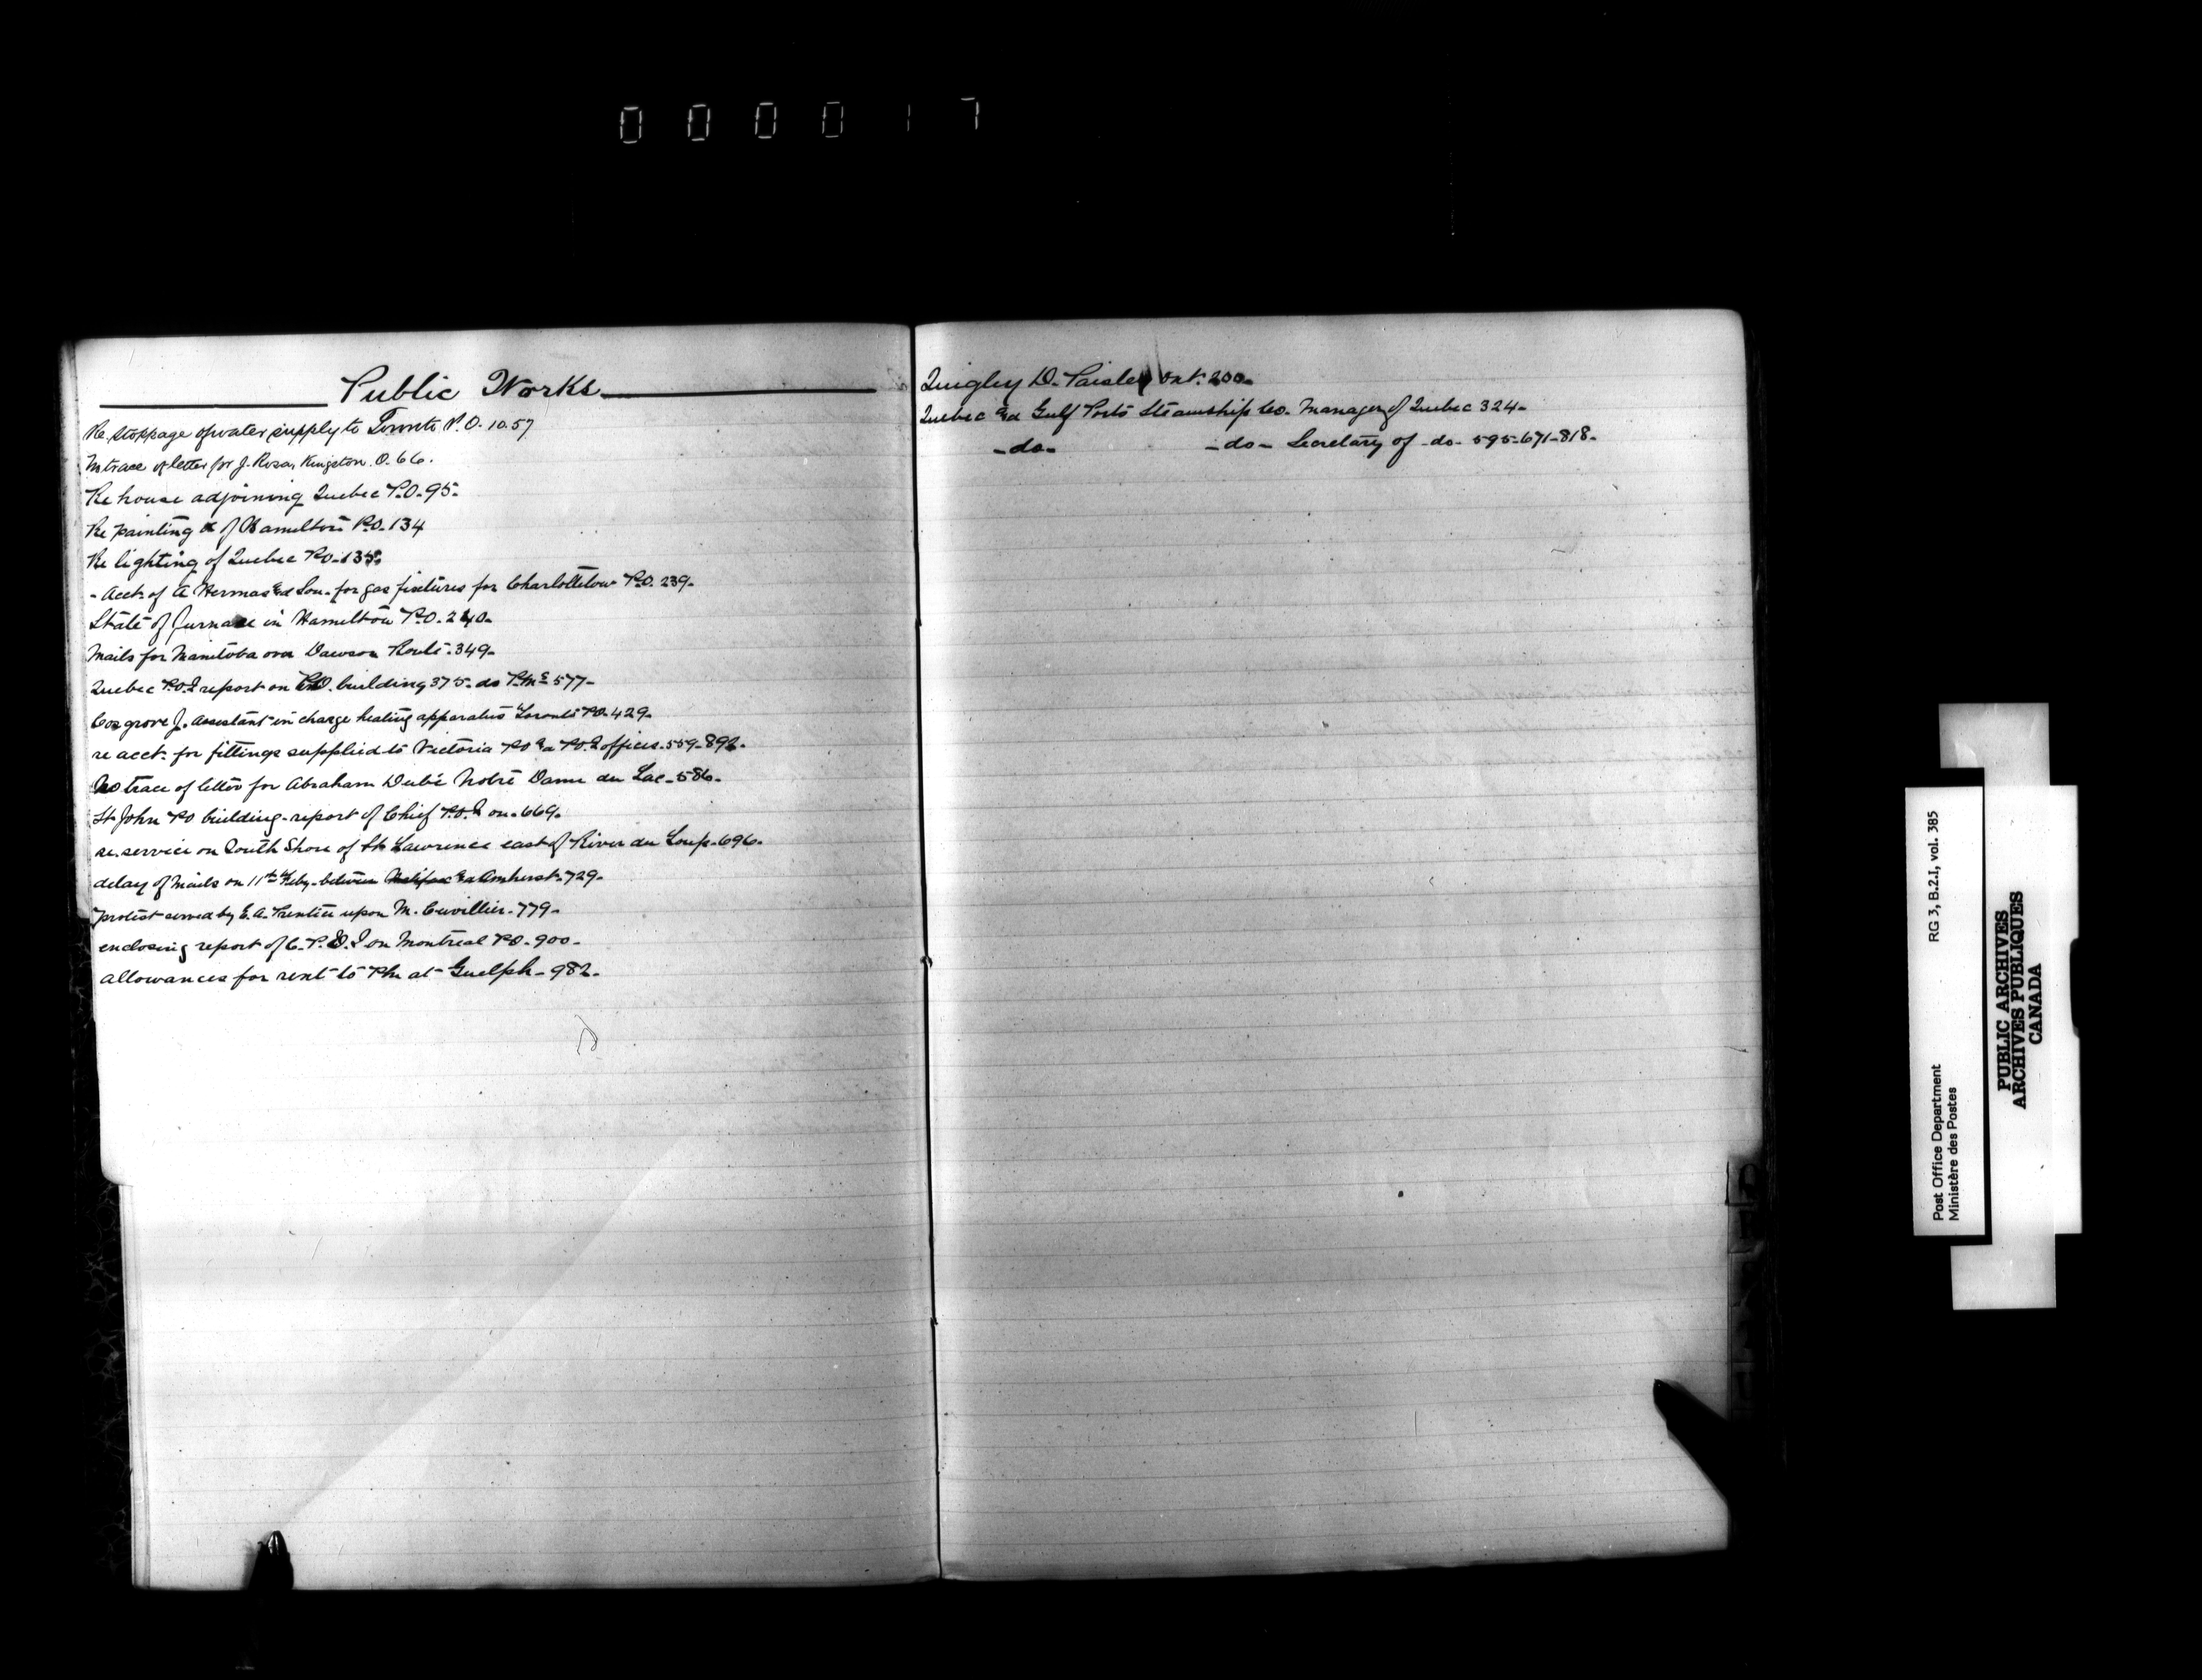 000017
Public Works
Re. stoppage of water supply to Toronto P.O. 10.57
No trace of letter for J. Rosa, Kingston. O. 66.
Re house adjoining Quebec P.O. 95.
Re painting & of Hamilton P.O. 134
Re lighting of Quebec P.O. 135.
- Acct. of A Hermas & Son. for gas fixtures for Charlottetown P.O. 239.
State of furnace in Hamilton P.O. 240.
Mails for Manitoba over Dawson Route. 349.
Quebec P.O.I report on P.O. building 375. do P.Mr 577-
Cosgrove J. Assistant in charge heating apparatus Toronto P.O. 429.
re acct. for fittings supplied to Victoria P.O & P.O.I offices. 559-892.
No trace of letter for Abraham Dubé Notre Dame du Lac. 586.
St. John P.O building. report of Chief P.O.I on. 669.
re. service on South Shore of St Lawrence east of River du Loup. 696.
delay of Mails on 11th Feby. between Halifax & Amherst. 729.
protest served by E.A. Prentice upon M. Cuvillier. 779.
enclosing report of C.P.O.I on Montreal P.O. 900-
allowances for rent to P.M. at Guelph- 982.
Quigley D. Paisley Ont. 200.
Quebec & Gulf Ports Steamship Co. Manager of Quebec 324.
-do- -do- Secretary of -do- 595-671-818.
RG 3, B.2.I, vol. 385
Post Office Department
Ministère des Postes
PUBLIC ARCHIVES
ARCHIVES PUBLIQUES
CANADA